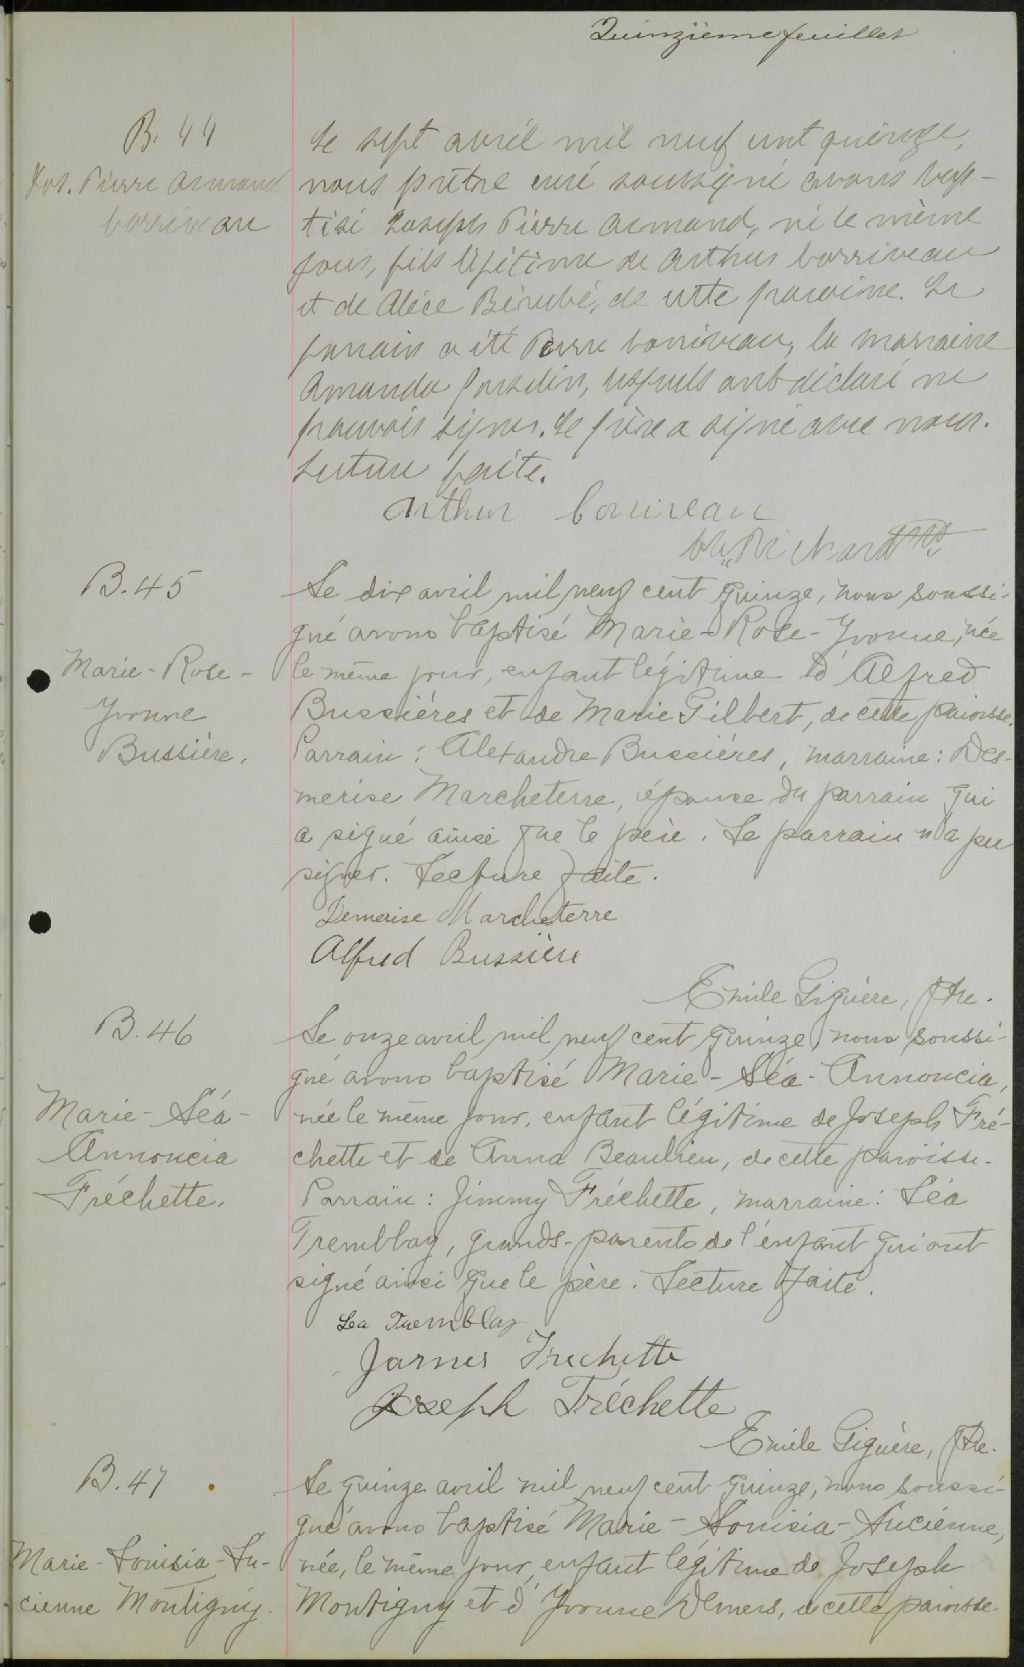 Quinzième feuillet
B. 44
Jos. Pierre Armand
Corriveau
Le sept avril mil neuf cent quinze,
nous prêtre curé soussigné avons bap-
tisé Joseph Pierre Armand, né le même
jour, fils légitime de Arthur Corriveau
et de Alice Bérubé, de cette paroisse. Le
parrain a été Pierre Corriveau, la marraine
Amanda Josselin, lesquels ont déclaré ne
pouvoir signer. Le père a signé avec nous.
Lecture faite.
Arthur Corriveau
Richard Ptre
B. 45
Marie-Rose-
Yvonne
Bussière.
Le dix avril mil neuf cent quinze, nous soussi-
gné avons baptisé Marie-Rose-Yvonne, née
le même jour, enfant légitime d'Alfred
Bussières et de Marie Gilbert, de cette paroisse.
Parrain: Alexandre Bussières, marraine: Des-
merise Marcheterre, épouse du parrain qui
a signé ainsi que le père. Le parrain n'a pu
signer. Lecture faite.
Demerise Marcheterre
Alfred Bussière
Emile Giguère, Ptre.
B. 46
Marie-Léa-
Annoncia
Fréchette.
Le onze avril mil neuf cent quinze, nous soussi-
gné avons baptisé Marie-Léa-Annoncia,
née le même jour, enfant légitime de Joseph Fré-
chette et de Anna Beaulieu, de cette paroisse.
Parrain: Jimmy Fréchette, marraine: Léa
Tremblay, grands-parents de l'enfant qui ont
signé ainsi que le père. Lecture faite.
Lea Tremblay
James Frechette
Joseph Fréchette
Emile Giguère, Ptre.
B. 47
Marie-Louisia-Lu-
cienne Montigny.
Le quinze avril mil neuf cent quinze, nous soussi-
gné avons baptisé Marie-Louisia-Lucienne,
née, le même jour, enfant légitime de Joseph
Montigny et d'Yvonne Demers, de cette paroisse.